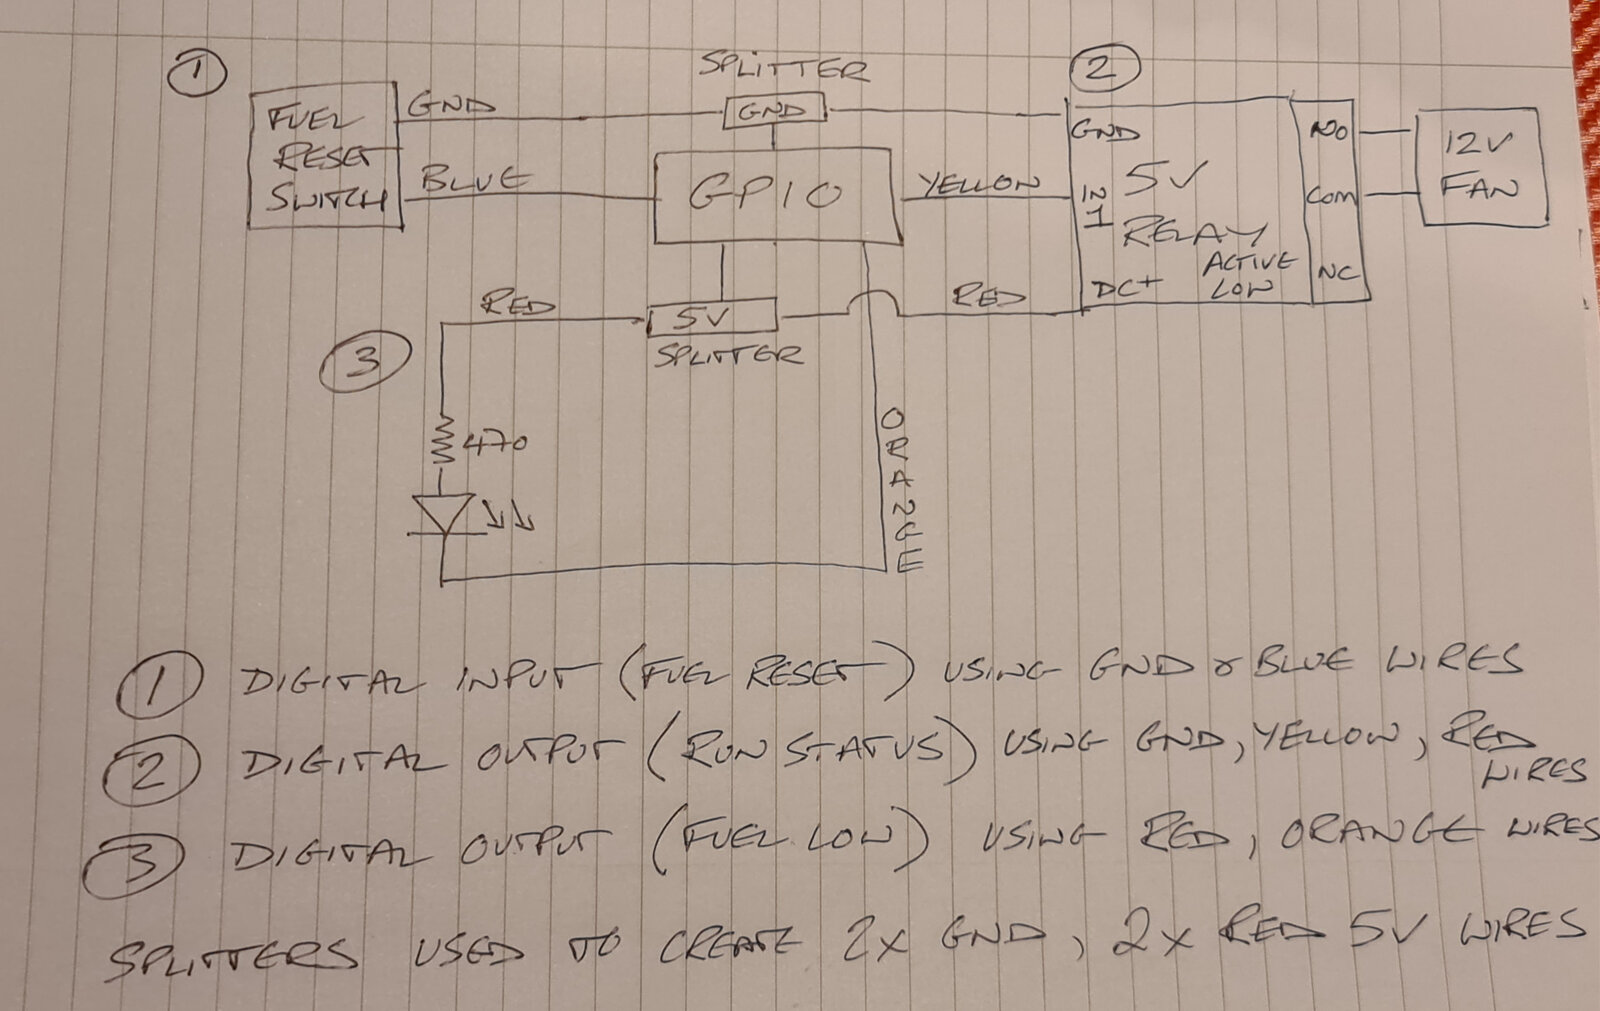 ①
SPLITTER
②
FUEL
RESET
SWITCH
GND
BLUE
GND
GPIO
YELLOW
GND
IN
1
5V
RELAY
ACTIVE
LOW
DC+
NO
COM
NC
12V
FAN
RED
5V
SPLITTER
RED
③
470
ORANGE
① DIGITAL INPUT (FUEL RESET) USING GND & BLUE WIRES
② DIGITAL OUTPUT (RUN STATUS) USING GND, YELLOW, RED
WIRES
③ DIGITAL OUTPUT (FUEL LOW) USING RED, ORANGE WIRES
SPLITTERS USED TO CREATE 2x GND, 2x RED 5V WIRES